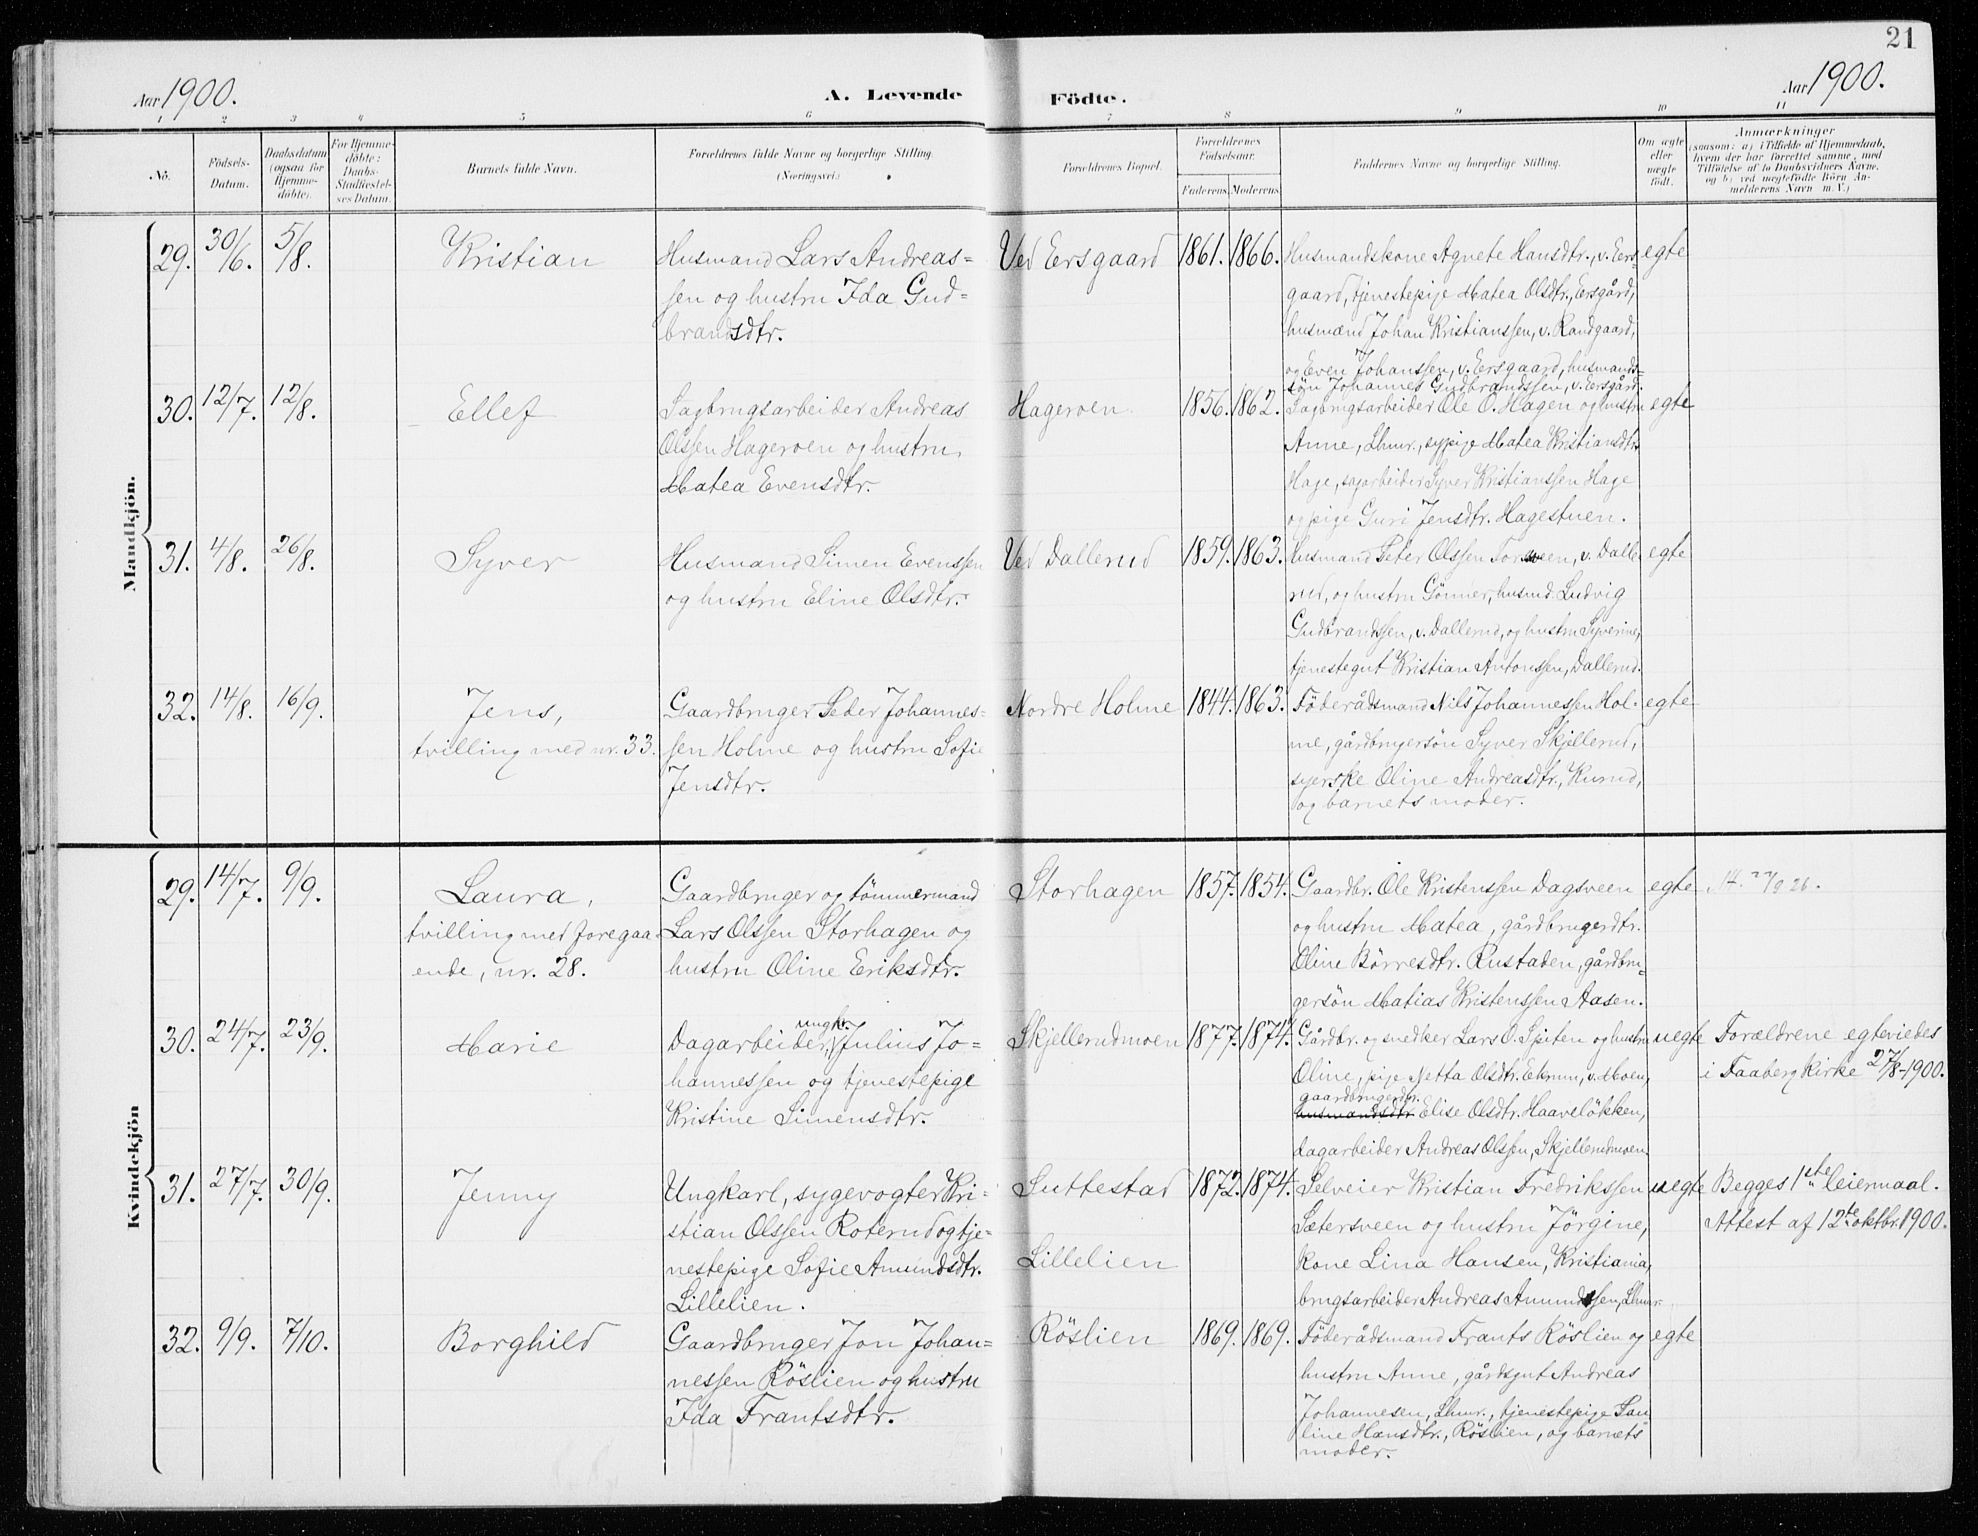 21
Aar 1900.
A. Levende Födte.
Aar 1900.
1 2 3 4 5 6 7 8 9 10 11
No.
Födsels-
Datum.
Daabsdatum
(ogsaa for
Hjemme-
döbte).
For Hjemme-
döbte:
Daabs-
Stadfæstel-
ses Datum.
Barnets fulde Navn.
Forældrenes fulde Navne og borgerlige Stilling.
(Næringsvei.)
Forældrenes Bopæl.
Forældrenes
Födselsaar.
Faderens. Moderens.
Faddernes Navne og borgerlige Stilling.
Om ægte
eller
uægte
födt.
Anmærkninger
(saasom: a) i Tilfælde af Hjemmedaab,
hvem der har forrettet samme, med
Tilföielse af to Daabsvidners Navne,
og b) ved uægtefödte Börn An-
melderens Navn m. V.)
Mandkjön.
29. 30/6. 5/8.
Kristian
Husmand Lars Andreas-
sen og hustru Ida Gud-
brandsdtr.
Ved Ersgaard
1861. 1866.
Husmandskone Agnete Hansdtr., v. Ers-
gaard, tjenestepige Matea Olsdtr., Ersgård,
husmand Johan Kristianssen, v. Randgaard,
og Even Johanssen, v. Ersgaard, husmands-
søn Johannes Gudbrandssen, v. Ersgård.
egte
30. 12/7. 12/8.
Ellef
Sagbrugsarbeider Andreas
Olssen Hageroen og hustru
Matea Evensdtr.
Hageroen
1856. 1862.
Sagbrugsarbeider Ole O. Hagen og hustru
Anne, Lhmr., sypige Matea Kristiansdtr.
Hage, sagarbeider Syver Kristianssen Hage
og pige Guri Jensdtr. Hagestuen.
egte
31. 4/8. 26/8.
Syver
Husmand Simen Evenssen
og hustru Eline Olsdtr.
Ved Dallerud
1859. 1863.
Husmand Peter Olssen, v. Dalle-
rud, og hustru Gönner, husmd. Ludvig
Gudbrandssen, v. Dallerud, og hustru Syverine,
tjenestegut Kristian Antonssen, Dallerud.
egte
32. 14/8. 16/9.
Jens,
tvilling med nr. 33.
Gaardbruger Peder Johannes-
sen Holme og hustru Sofie
Jensdtr.
Nordre Holme
1844. 1863.
Föderådsmand Nils Johannessen Hol-
me, gårdbrugersön Syver Skjellerud,
syerske Oline Andreasdtr., Kurud,
og barnets moder.
egte
Kvindekjön
29. 14/7. 9/9.
Laura,
tvilling med foregaa-
ende, nr. 28.
Gaardbruger og tömmermand
Lars Olssen Storhagen og
hustru Oline Eriksdtr.
Storhagen
1857. 1854.
Gaardbr. Ole Kristenssen Dagsveen
og hustru Matea, gårdbrugerdtr.
Oline Börresdtr. Rustaden, gårdbru-
gersön Matias Kristenssen Aasen.
egte
30. 24/7. 23/9.
Marie
ungk.
Dagarbeider, Julius Jo-
hannessen og tjenestepige
Kristine Simensdtr.
Skjellerudmoen
1877. 1874.
Gårdbr. og snedker Lars O. Spiten og hustru
Oline, pige Netta Olsdtr. Ekrum, v. Moen,
gaardbrugerdtr.
husmandsdtr. Elise Olsdtr. Haavelökken,
dagarbeider Andreas Olssen, Skjellerudmoen.
uegte
Forældrene egteviedes
i Faaberg kirke 27/8-1900.
31. 27/7. 30/9.
Jenny
Ungkarl, sygevogter Kri-
stian Olssen Roterud og tje-
nestepige Sofie Amundsdtr.
Lillelien.
Suttestad
Lillelien
1872. 1874.
Selveier Kristian Fredrikssen
Sætersveen og hustru Jörgine,
kone Lina Hansen, Kristiania,
brugsarbeider Andreas Amundssen, Lhmr.
uegte
Begges 1ste leiermaal.
Attest af 12te oktbr. 1900.
32. 9/9. 7/10.
Borghild
Gaardbruger Jon Johan-
nessen Röslien og hustru
Ida Frantsdtr.
Röslien
1869. 1869.
Föderådsmand Frants Röslien og
hustru Anne, gårdsgut Andreas
Johannesen, Lhmr., tjenestepige Pau
line Hansdtr., Röslien, og barnets
moder.
egte